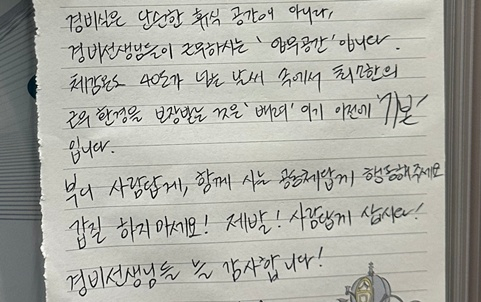 경비실은 단순한 휴식 공간이 아니라,
경비선생님들이 근무하시는 '업무공간' 입니다.
체감온도 40도가 넘는 날씨 속에서 최소한의
근무환경을 보장받는 것은 '배려' 이기 이전에 '기본'
입니다.
부디 사람답게, 함께 사는 공동체답게 행동해주세요
갑질 하지마세요! 제발! 사람답게 삽시다!
경비선생님들 늘 감사합니다!